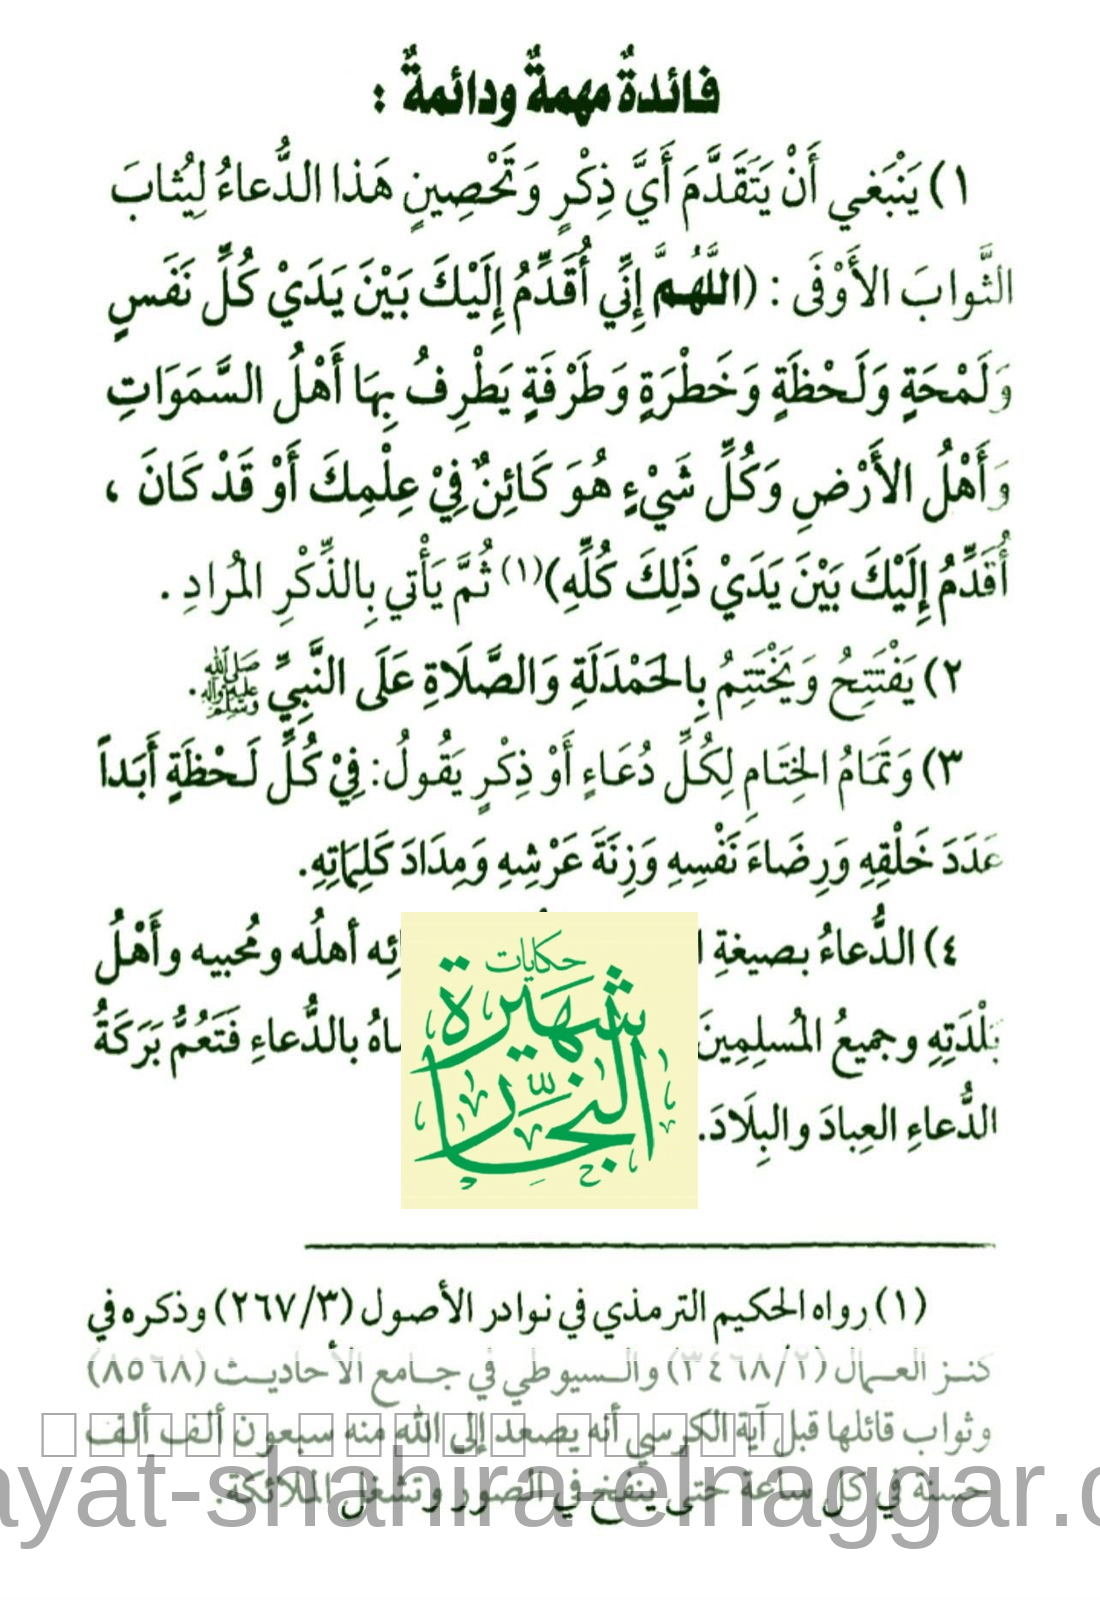 فائدةٌ مهمةٌ ودائمةٌ :
١) يَنْبَغي أَنْ يَتَقَدَّمَ أَيَّ ذِكْرٍ وَتَحْصِينٍ هَذا الدُّعاءُ لِيُثابَ
الثَّوابَ الأَوْفَى : (اللَّهُمَّ إِنِّي أُقَدِّمُ إِلَيْكَ بَيْنَ يَدَيْ كُلِّ نَفَسٍ
وَلَمْحَةٍ وَلَحْظَةٍ وَخَطْرَةٍ وَطَرْفَةٍ يَطْرِفُ بِهَا أَهْلُ السَّمَوَاتِ
وَأَهْلُ الأَرْضِ وَكُلِّ شَيْءٍ هُوَ كَائِنٌ فِيْ عِلْمِكَ أَوْ قَدْ كَانَ ،
أُقَدِّمُ إِلَيْكَ بَيْنَ يَدَيْ ذَلِكَ كُلِّهِ)(١) ثُمَّ يَأْتي بِالذِّكْرِ المُرادِ .
٢) يَفْتَتِحُ وَيَخْتَتِمُ بِالحَمْدَلَةِ وَالصَّلَاةِ عَلَى النَّبِيِّ صَلَى اللهُ عليه وآله وسلم.
٣) وَتَمَامُ الخِتَامِ لِكُلِّ دُعَاءٍ أَوْ ذِكْرٍ يَقُولُ: فِيْ كُلِّ لَحْظَةٍ أَبَداً
عَدَدَ خَلْقِهِ وَرِضَاءَ نَفْسِهِ وَزِنَةَ عَرْشِهِ وَمِدَادَ كَلِمَاتِهِ.
٤) الدُّعاءُ بصيغةِ أهلُه ومُحبيه وأَهْلُ
بَلْدَتِهِ وجميعُ المُسلِمِينَ بالدُّعاءِ فَتَعُمُّ بَرَكَةُ
الدُّعاءِ العِبادَ والبِلَادَ.
حكايات
شهيرة
النجار
(١) رواه الحكيم الترمذي في نوادر الأصول (٢٦٧/٣) وذكره في
كنـز العـمال (٣٤٦٨/٢) والـسيوطي في جـامع الأحاديـث (٨٥٦٨)
وثواب قائلها قبل آية الكرسي أنه يصعد إلى الله منه سبعون ألف ألف
حسنة في كل ساعة حتى ينفخ في الصور وتشغل الملائكة.
ayat-shahira-elnaggar.c